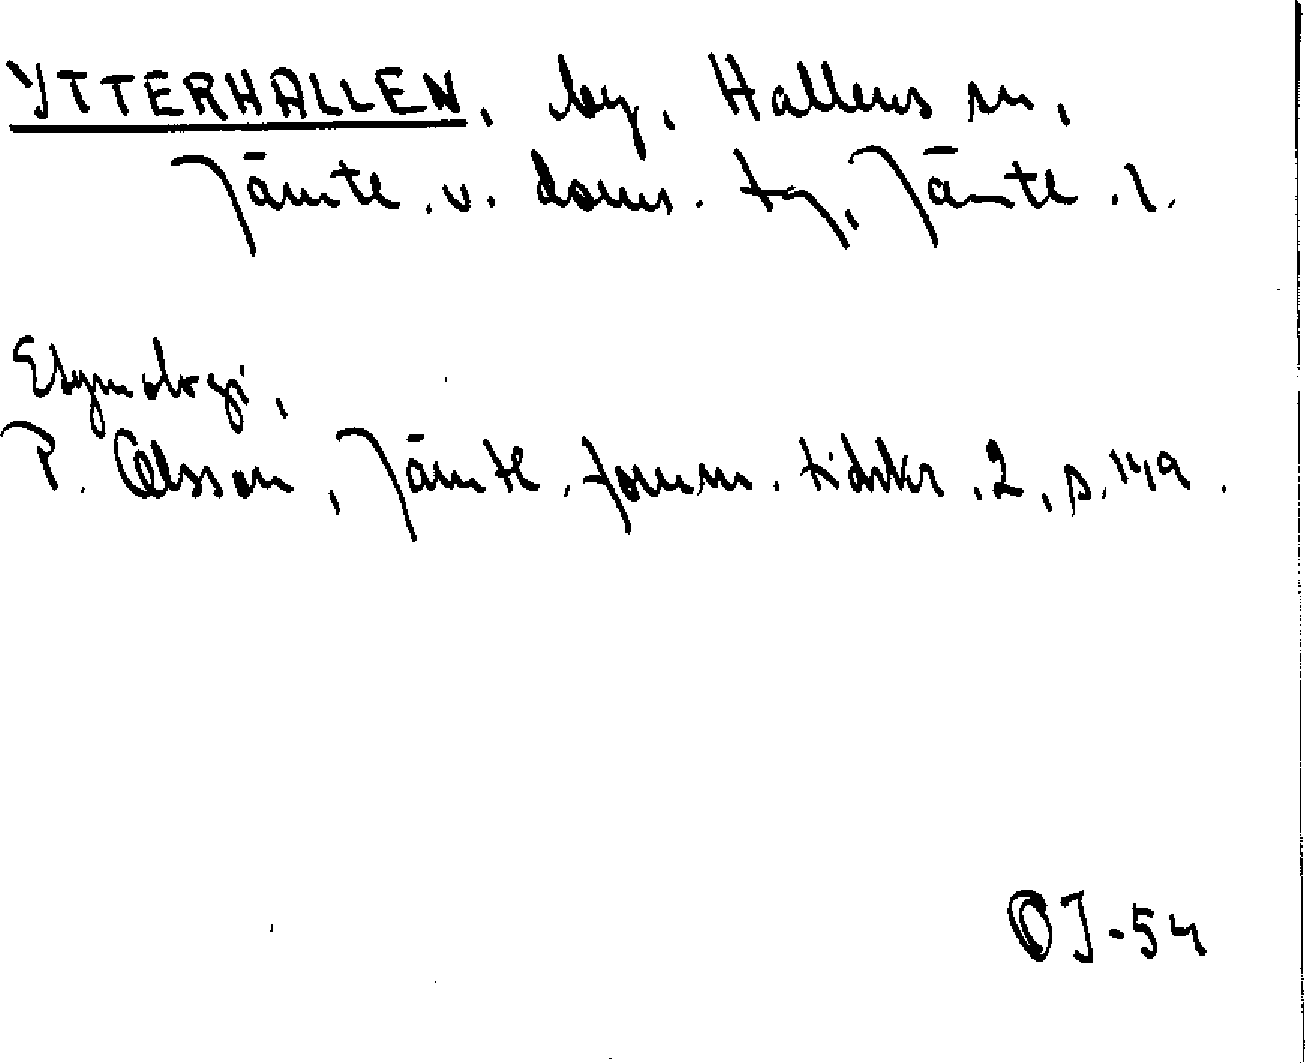 YTTERHALLEN, by, Hallens sn,
Jämtl. v. doms. tg, Jämtl. l.
Etymologi,
P. Olsson, Jämtl. fornm. tidskr. 2, s. 149.
OJ-54